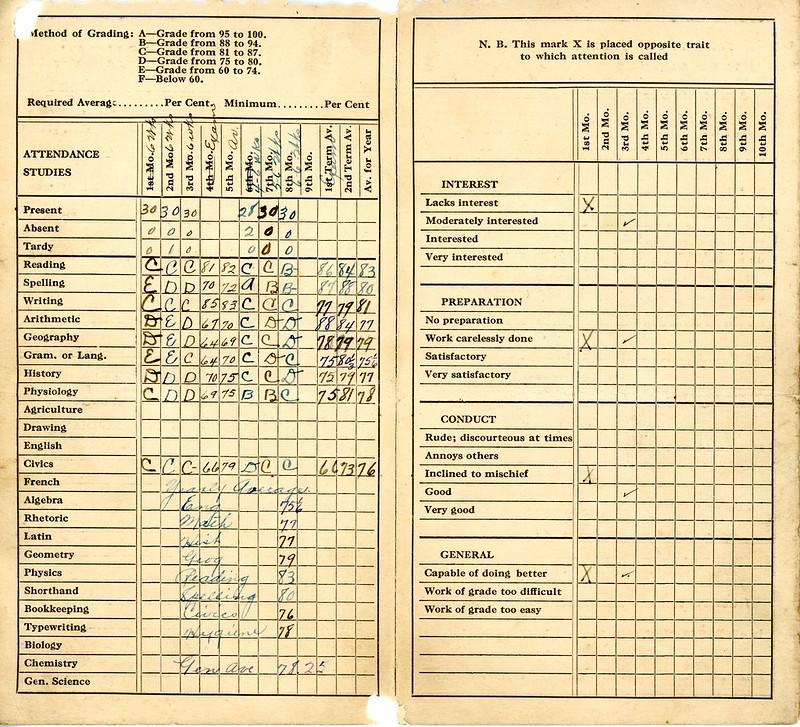 Method of Grading: A—Grade from 95 to 100.
B—Grade from 88 to 94.
C—Grade from 81 to 87.
D—Grade from 75 to 80.
E—Grade from 60 to 74.
F—Below 60.
Required Average.........Per Cent, Minimum.........Per Cent
ATTENDANCE
STUDIES
1st Mo. 6 Wks 2nd Mo. 6 Wks 3rd Mo. 6 wks 4th Mo. Exams 5th Mo. Av. 6th Mo. 7th Mo. 8th Mo. 9th Mo. 1st Term Av. 2nd Term Av. Av. for Year
Present 30 30 30 28 30 30
Absent 0 0 0 2 0 0
Tardy 0 1 0 0 0 0
Reading C C C 81 82 C C B- 86 84 83
Spelling E D D 70 72 A B B- 87 88 80
Writing C C C 85 83 C C C 77 79 81
Arithmetic D E D 67 70 C D D 88 84 77
Geography D E D 64 69 C C D 78 79 79
Gram. or Lang. E E C 64 70 C D C 75 80½ 75½
History D D D 70 75 C C D 75 79 77
Physiology C D D 69 75 B B C 75 81 78
Agriculture
Drawing
English
Civics C C C- 66 79 D C C 66 73 76
French Yearly Average.
Algebra Eng 75½
Rhetoric Math 77
Latin Hist 77
Geometry Geog 79
Physics Reading 83
Shorthand Spelling 80
Bookkeeping Civics 76
Typewriting Hygiene 78
Biology
Chemistry Gen Ave 78.25
Gen. Science
N. B. This mark X is placed opposite trait
to which attention is called
1st Mo. 2nd Mo. 3rd Mo. 4th Mo. 5th Mo. 6th Mo. 7th Mo. 8th Mo. 9th Mo. 10th Mo.
INTEREST
Lacks interest X
Moderately interested ✓
Interested
Very interested
PREPARATION
No preparation
Work carelessly done X ✓
Satisfactory
Very satisfactory
CONDUCT
Rude; discourteous at times
Annoys others
Inclined to mischief X
Good ✓
Very good
GENERAL
Capable of doing better X ✓
Work of grade too difficult
Work of grade too easy